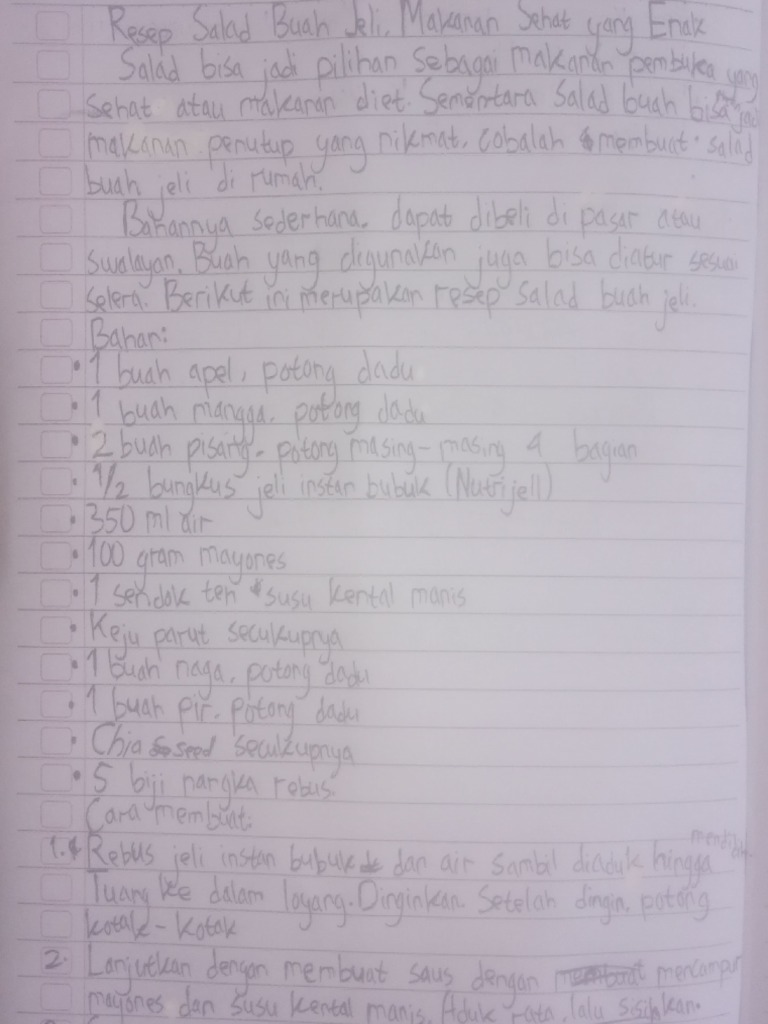 Resep Salad Buah Jeli, Makanan Sehat yang Enak
Salad bisa jadi pilihan sebagai makanan pembuka yang
sehat atau makanan diet. Sementara Salad buah bisa jadi
makanan penutup yang nikmat. Cobalah membuat salad
buah jeli di rumah.
Bahannya sederhana. dapat dibeli di pasar atau
swalayan. Buah yang digunakan juga bisa diatur sesuai
selera. Berikut ini merupakan resep salad buah jeli.
Bahan:
• 1 buah apel, potong dadu
• 1 buah mangga, potong dadu
• 2 buah pisang, potong masing-masing 4 bagian
• 1/2 bungkus jeli instan bubuk (Nutrijell)
• 350 ml air
• 100 gram mayones
• 1 sendok teh susu kental manis
• Keju parut secukupnya
• 1 buah naga, potong dadu
• 1 buah pir, potong dadu
• Chia seed secukupnya
• 5 biji nangka rebus.
Cara membuat:
1. Rebus jeli instan bubuk dan air sambil diaduk hingga mendidih
Tuang ke dalam loyang. Dinginkan. Setelah dingin, potong
kotak-kotak
2. Lanjutkan dengan membuat saus dengan mencampur
mayones dan susu kental manis. Aduk rata, lalu sisihkan.